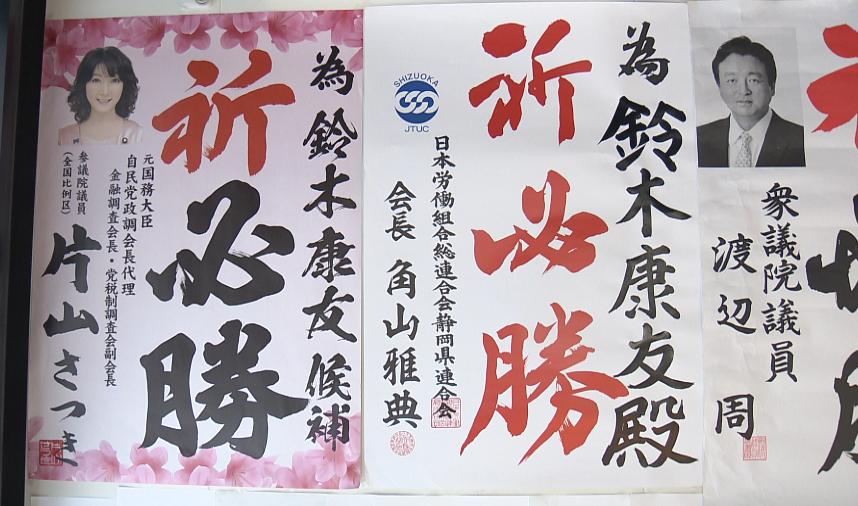 為鈴木康友候補
祈必勝
元国務大臣
自民党政調会長代理
金融調査会長・党税制調査会副会長
参議院議員
(全国比例区)
片山さつき
為鈴木康友殿
祈必勝
SHIZUOKA
JTUC
日本労働組合総連合会静岡県連合会
会長 角山雅典
衆議院議員
渡辺 周